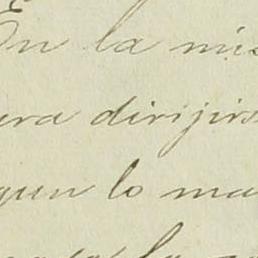 En la mis
ara dirijirs
gun lo ma